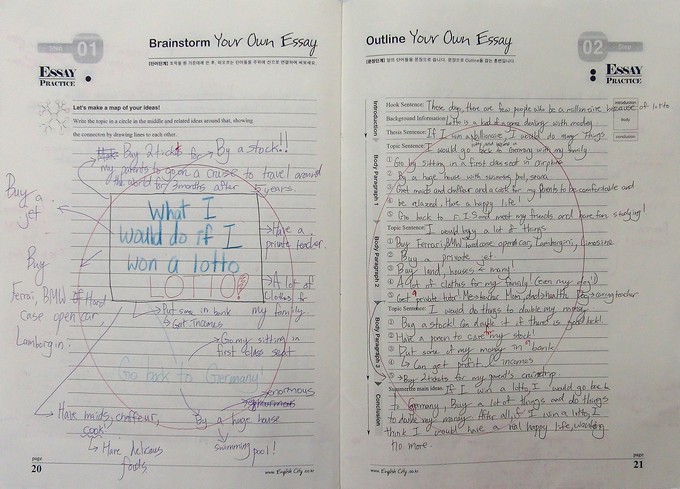 Step 01
Brainstorm Your Own Essay
ESSAY
PRACTICE
Let's make a map of your ideas!
Write the topic in a circle in the middle and related ideas around that, showing
the connection by drawing lines to each other.
Buy 2 tickets for
By a stock!!
my parents to open a cruise to travel around
the world for 3 months after years.
Buy a
jet
What I
would do if I
won a lotto
LOTTO
Have a
private teacher.
A lot of
clothes for
my family.
Buy
Ferrari, BMW Hard
case open car
Lamborgin.
Put some in bank
Get incomes
Go my sitting in
first class seat
Go back to Germany!
enormous
Have maids, chaffeur,
cook
By a huge house
Have delicous
foods
swimming pool!
page
20
www.English City.co.kr
Outline Your Own Essay
02 Step
ESSAY
PRACTICE
Introduction
Hook Sentence: These days, there are few people who be a millionaire because of lotto
introduction
Background Information: Lotto is a kind of game dealing with modey
body
Thesis Sentence: If I win a billionaire, I would do many things
conclusion
Body Paragraph 1
Topic Sentence: I would go back to Germany with my family
① Go by sitting in a first class seat in airplane
② By a huge house with swimming pool, sauna
③ Get maids and chaffeur and a cook for my parents to be comfortable and
④ be relaxed. Have a happy life!
⑤ Go back to r IS and meet my friends and have fun studying!
Body Paragraph 2
Topic Sentence: I would buy a lot of things
① Buy Ferrari, BMW hard case open car, Lamborgeri, limosine
② Buy a private jet
③ Buy land, houses many
④ A lot of cloths for my family (even my dog!)
⑤ Get a private tutor Me teacher Mom, dad
Body Paragraph 3
Topic Sentence: I would do things to double my money
① Buy a stock! Can double it if there is good luck!
② Have a person to care my stock!
③ Put some of my money in bank
④ Can get profit incomes
⑤ Buy 2 tickets for my parent's cruise trip.
Conclusion
Summerize main ideas. If I win a lotto, I would go back
to Germany, Buy a lot of things and do things
to double my money. After all, if I win a lotto, I
think I would have a real happy life, working
no more.
page
21
www.English City.co.kr